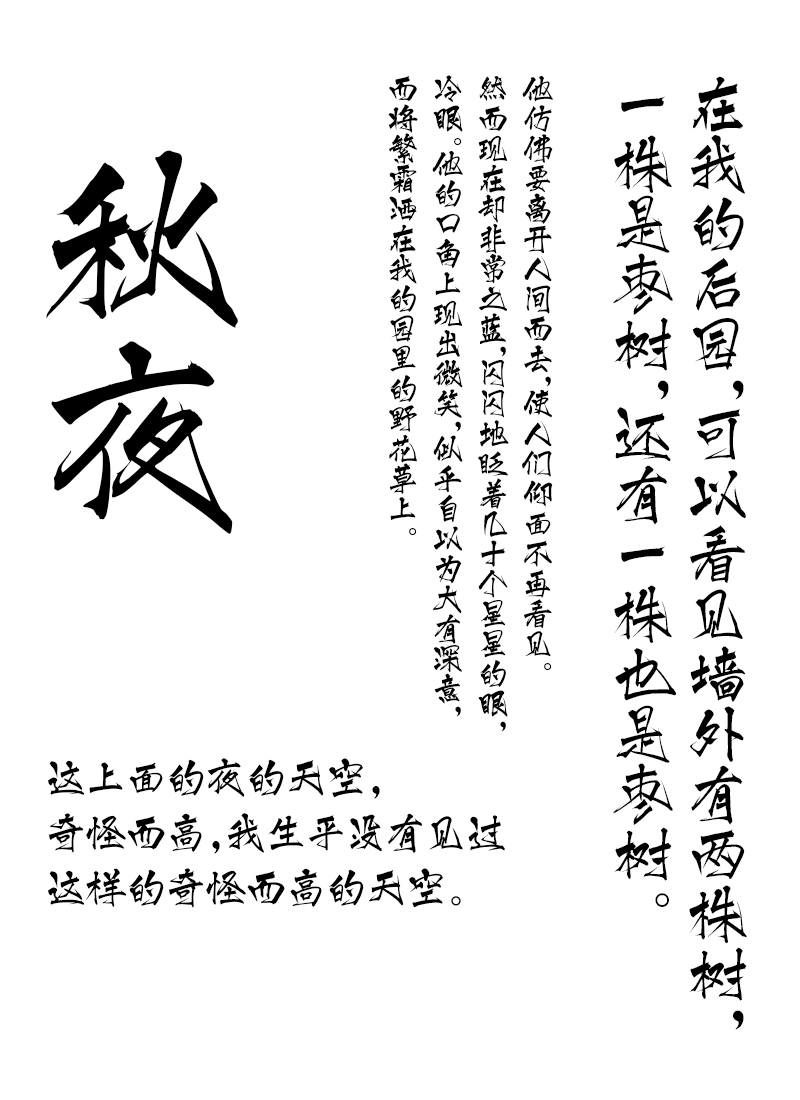 秋夜
在我的后园，可以看见墙外有两株树，
一株是枣树，还有一株也是枣树。
这上面的夜的天空，
奇怪而高，我生平没有见过
这样的奇怪而高的天空。
他仿佛要离开人间而去，使人们仰面不再看见。
然而现在却非常之蓝，闪闪地眨着几十个星星的眼，
冷眼。他的口角上现出微笑，似乎自以为大有深意，
而将繁霜洒在我的园里的野花草上。